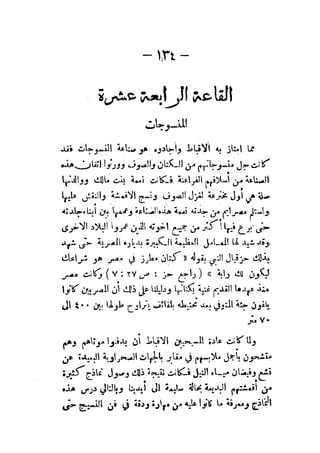 — ١٣٤ —
القاعة الرابعة عشرة
المنسوجات
مما امتاز به الاقباط وأجادوه هو صناعة النسوجات فقد
كانت جل منسوجاتهم من الكتان والصوف وورثوا اتقان هذه
الصناعة من أسلافهم الفراعنة فكانت نعمة بنت مالك ووالدتها
صلة هي أول مخترعة لغزل الصوف ونسج الاقمشة والنقش عليها
واستلم مصرايم من جدته نعمة هذه الصناعة وعممها بين أبناء جلدته
حتى برع فيها أكثر من جميع اخوته الذين عمروا البلاد الاخرى
وقد شيد لها المعامل العظيمة الكبيرة بدياره المصرية حتى شهد
بذلك حزقيال النبي بقوله « كتان مطرز في مصر هو شراعك
ليكون لك راية » ( راجع حز : ص ٢٧ : ٧ ) وكانت مصر
منذ عهدها القديم غنية بكتانها ودليلنا على ذلك أن المصريين كانوا
يلفون جثة المتوفي بعد تحنيطه بلفائف يتراوح طولها بين ٤٠٠ الى
٧٠٠ متر
ولما كانت عادة المسيحيين الاقباط أن يدفنوا موتاهم وهم
متشحون بأجمل ملابسهم في مقابر بالجهات الصحراوية البعيدة عن
نشع وفيضان مياه النيل فكانت نتيجة ذلك وصول نماذج كثيرة
من أقمشتهم البديعة بحالة سليمة الى أيدينا وبالتالي درس هذه
النماذج ومعرفة ما كانوا عليه من مهارة ودقة في فن النسيج حتى